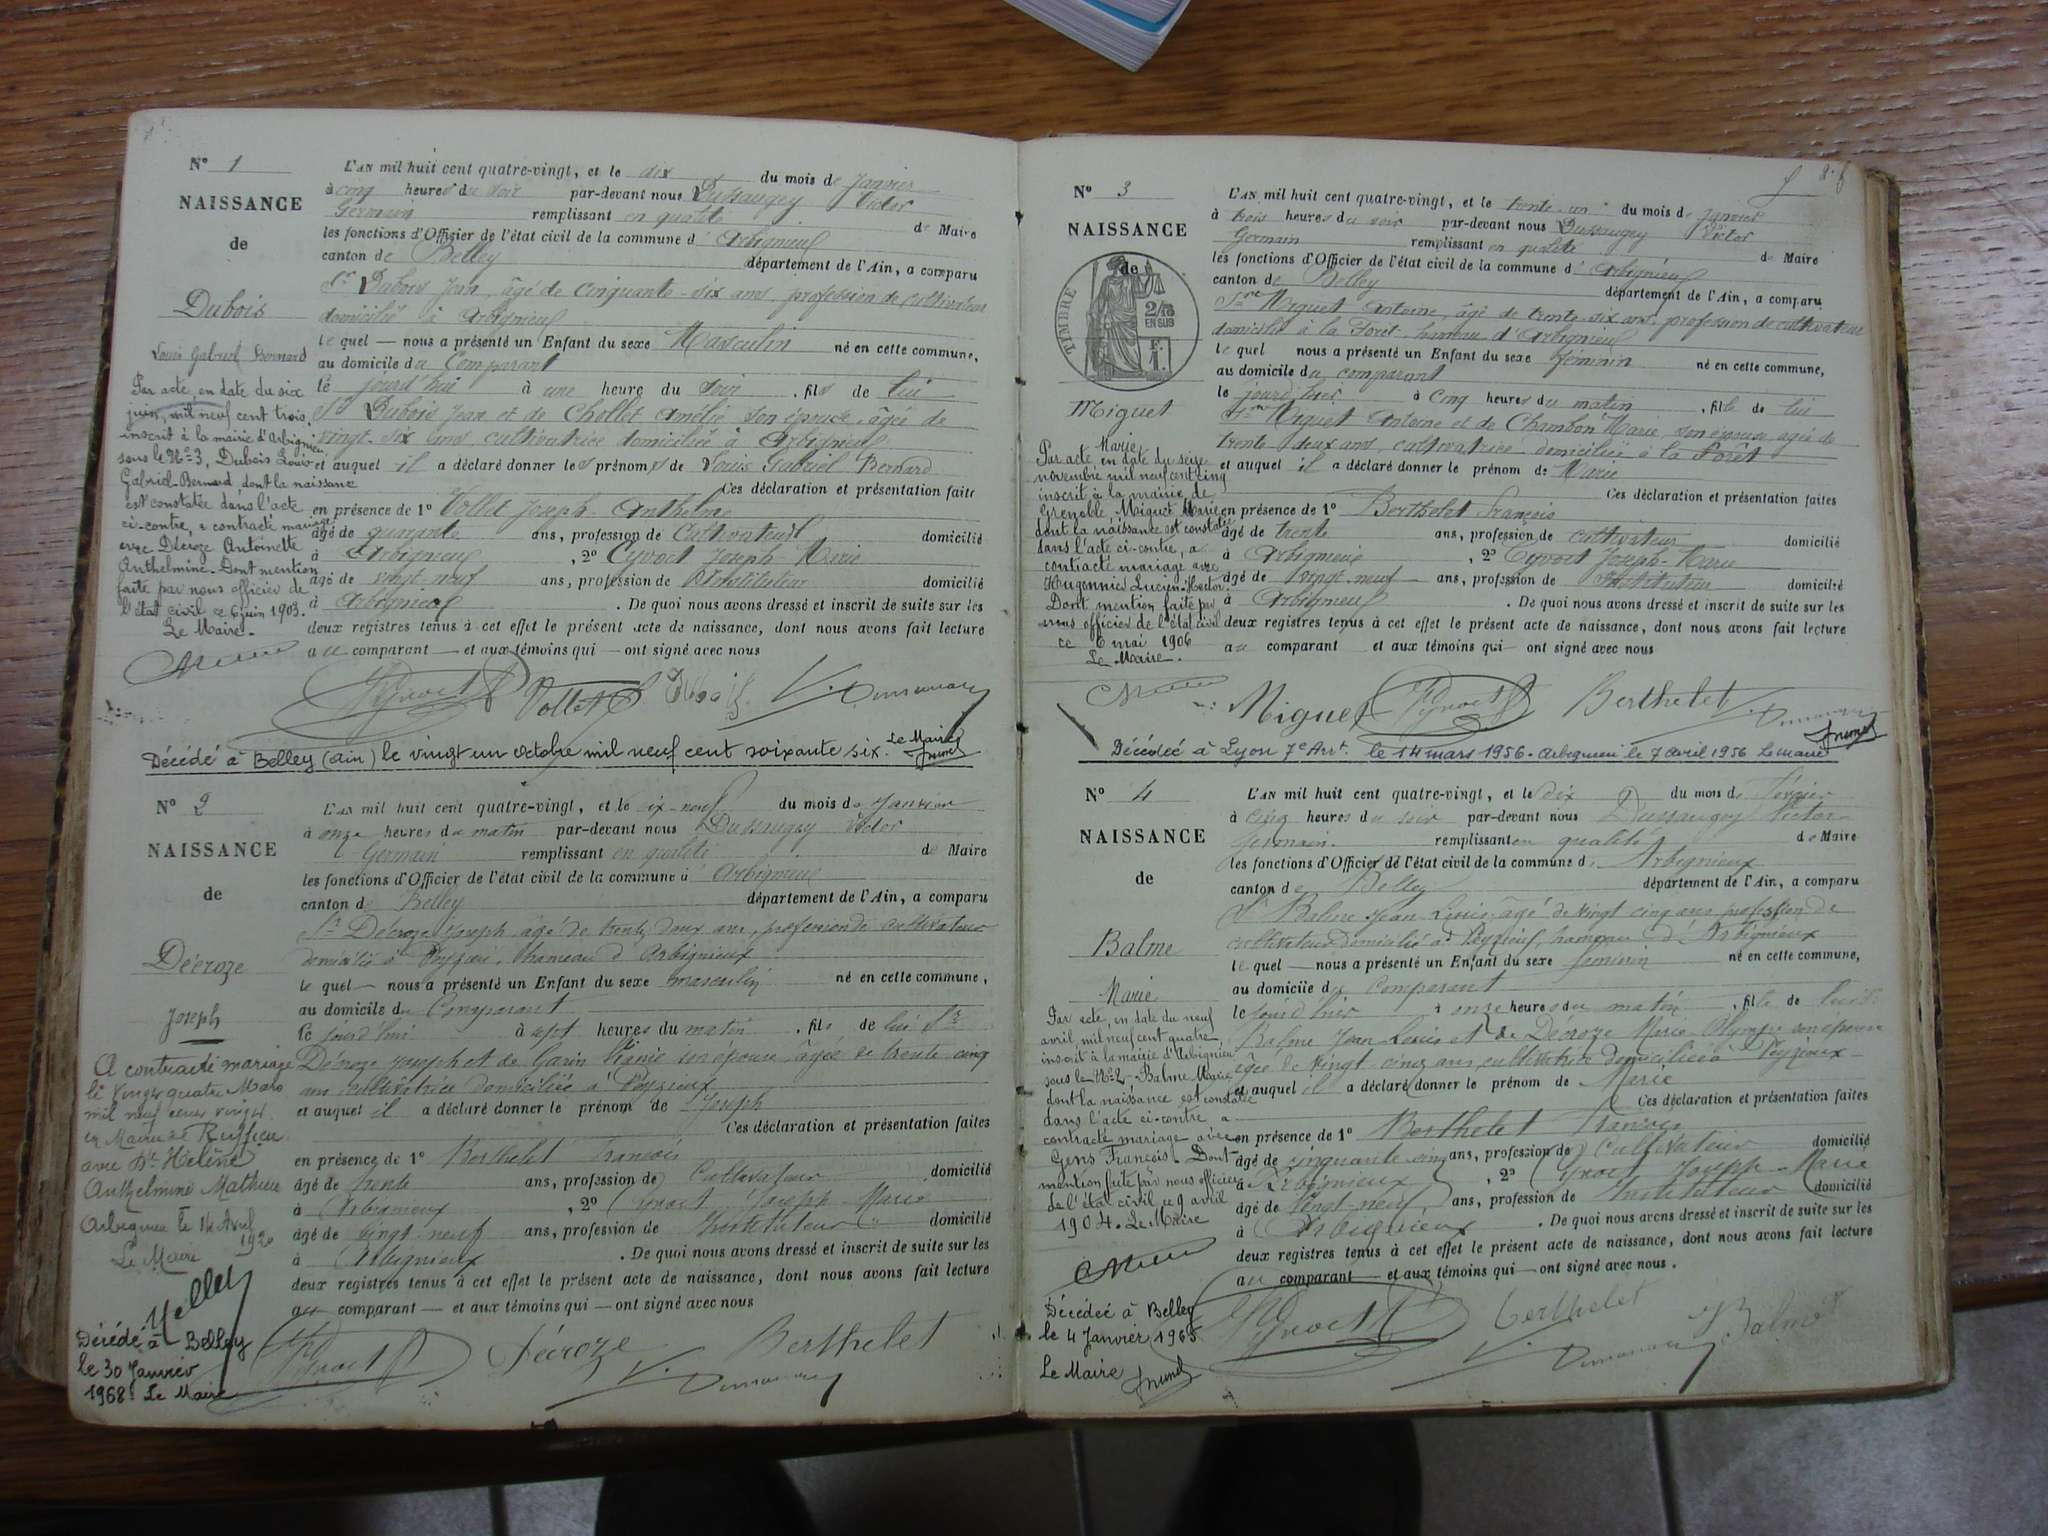 N° 1
NAISSANCE
de
Dubois
Louis Gabriel Bernard
Par acte, en date du six
juin, mil neuf cent trois,
inscrit à la mairie d'Arbignieu
sous le N° 3, Dubois Louis
Gabriel-Bernard dont la naissance
est constatée dans l'acte
ci-contre, a contracté mariage
avec Décroze Antoinette
Anthelmine. Dont mention
faite par nous officier de
l'état civil ce 6 juin 1903.
Le Maire.
L'AN mil huit cent quatre-vingt, et le dix du mois de Janvier
à cinq heures du soir par-devant nous Dussaugey Victor
Germain remplissant en qualité de Maire
les fonctions d'Officier de l'état civil de la commune d' Arbignieu
canton de Belley département de l'Ain, a comparu
Sr Dubois Jean, âgé de cinquante-six ans, profession de cultivateur
domicilié à Arbignieu
le quel — nous a présenté un Enfant du sexe Masculin né en cette commune,
au domicile du Comparant
le jourd'hui à une heure du soir, fils de lui
Sr Dubois Jean et de Chollet Amélie son épouse, âgée de
vingt-six ans, cultivatrice domiciliée à Arbignieu
et auquel il a déclaré donner les prénoms de Louis Gabriel Bernard
Ces déclaration et présentation faites
en présence de 1° Vollet Joseph Anthelme
âgé de quarante ans, profession de Cultivateur domicilié
à Arbignieu, 2° Cyvoct Joseph Marie
âgé de vingt-neuf ans, profession de Instituteur domicilié
à Arbignieu. De quoi nous avons dressé et inscrit de suite sur les
deux registres tenus à cet effet le présent acte de naissance, dont nous avons fait lecture
au comparant — et aux témoins qui — ont signé avec nous
Décédé à Belley (Ain) le vingt un octobre mil neuf cent soixante six. Le Maire
N° 2
NAISSANCE
de
Décroze
Joseph
A contracté mariage
le vingt quatre Mars
mil neuf cent vingt
en Mairie de Ruffieu
avec Dlle Hélène
Anthelmine Mathieu
Arbignieu le 14 Avril
1920
Le Maire
Décédé à Belley
le 30 Janvier
1968. Le Maire
L'AN mil huit cent quatre-vingt, et le dix-neuf du mois de Janvier
à onze heures du matin par-devant nous Dussaugey Victor
Germain remplissant en qualité de Maire
les fonctions d'Officier de l'état civil de la commune d' Arbignieu
canton de Belley département de l'Ain, a comparu
Sr Décroze Joseph âgé de trente deux ans, profession de cultivateur
domicilié à Peyzieu, hameau d'Arbignieux
le quel — nous a présenté un Enfant du sexe masculin né en cette commune,
au domicile du Comparant
le jourd'hui à sept heures du matin, fils de lui Sr
Décroze Joseph et de son épouse âgée de trente cinq
ans cultivatrice domiciliée à Peyzieux
et auquel il a déclaré donner le prénom de Joseph
Ces déclaration et présentation faites
en présence de 1° Berthelet François
âgé de trente ans, profession de Cultivateur domicilié
à Arbignieux, 2° Cyvoct Joseph-Marie
âgé de vingt-neuf ans, profession de Instituteur domicilié
à Arbignieux. De quoi nous avons dressé et inscrit de suite sur les
deux registres tenus à cet effet le présent acte de naissance, dont nous avons fait lecture
au comparant — et aux témoins qui — ont signé avec nous
Décroze Berthelet
N° 3
NAISSANCE
de
TIMBRE
2/10
EN SUS
F.
1.
Miguet
Marie
Par acte, en date du seize
novembre mil neuf cent cinq
inscrit à la mairie de
Grenoble Miguet Marie
dont la naissance est constatée
dans l'acte ci-contre, a
contracté mariage avec
Hugonnier Lucien-Hector.
Dont mention faite par
nous officier de l'état civil
ce 6 mai 1906
Le Maire.
L'AN mil huit cent quatre-vingt, et le trente-un du mois de Janvier
à trois heures du soir par-devant nous Dussaugey Victor
Germain remplissant en qualité de Maire
les fonctions d'Officier de l'état civil de la commune d' Arbignieu
canton de Belley département de l'Ain, a comparu
Miguet Antoine, âgé de trente-six ans, profession de cultivateur
domicilié à la Forêt hameau d'Arbignieu
le quel nous a présenté un Enfant du sexe féminin né en cette commune,
au domicile du comparant
le jourd'hui à cinq heures du matin, fille de lui
Miguet Antoine et de Chambon Marie, son épouse, âgée de
trente deux ans, cultivatrice domiciliée à la Forêt
et auquel il a déclaré donner le prénom de Marie
Ces déclaration et présentation faites
en présence de 1° Berthelet François
âgé de trente ans, profession de cultivateur domicilié
à Arbignieu, 2° Cyvoct Joseph-Marie
âgé de vingt-neuf ans, profession de Instituteur domicilié
à Arbignieu. De quoi nous avons dressé et inscrit de suite sur les
deux registres tenus à cet effet le présent acte de naissance, dont nous avons fait lecture
au comparant et aux témoins qui — ont signé avec nous
Miguet Berthelet
Décédée à Lyon 7e Arrt. le 14 mars 1956. Arbignieu le 7 avril 1956 Le maire
N° 4
NAISSANCE
de
Balme
Marie
Par acte, en date du neuf
avril mil neuf cent quatre,
inscrit à la mairie d'Arbignieu
sous le N° 2, Balme Marie
dont la naissance est constatée
dans l'acte ci-contre a
contracté mariage avec
Gens François. Dont
mention faite par nous officier
de l'état civil ce 9 avril
1904. Le Maire
Décédée à Belley
le 4 Janvier 1965
Le Maire
L'AN mil huit cent quatre-vingt, et le dix du mois de Février
à cinq heures du soir par-devant nous Dussaugey Victor
Germain remplissant en qualité de Maire
les fonctions d'Officier de l'état civil de la commune d' Arbignieux
canton de Belley département de l'Ain, a comparu
Sr Balme Jean Louis, âgé de vingt cinq ans profession de
cultivateur domicilié à Peyzieu, hameau d'Arbignieux
le quel — nous a présenté un Enfant du sexe féminin né en cette commune,
au domicile du Comparant
le jourd'hui à onze heures du matin, fille de lui Sr
Balme Jean Louis et de Decroze Marie Olympe son épouse
âgée de vingt cinq ans, cultivatrice domiciliée à Peyzieux
et auquel il a déclaré donner le prénom de Marie
Ces déclaration et présentation faites
en présence de 1° Berthelet François
âgé de cinquante cinq ans, profession de Cultivateur domicilié
à Arbignieux, 2° Cyvoct Joseph-Marie
âgé de vingt-neuf ans, profession de Instituteur domicilié
à Arbignieux. De quoi nous avons dressé et inscrit de suite sur les
deux registres tenus à cet effet le présent acte de naissance, dont nous avons fait lecture
au comparant — et aux témoins qui — ont signé avec nous.
Berthelet Balme